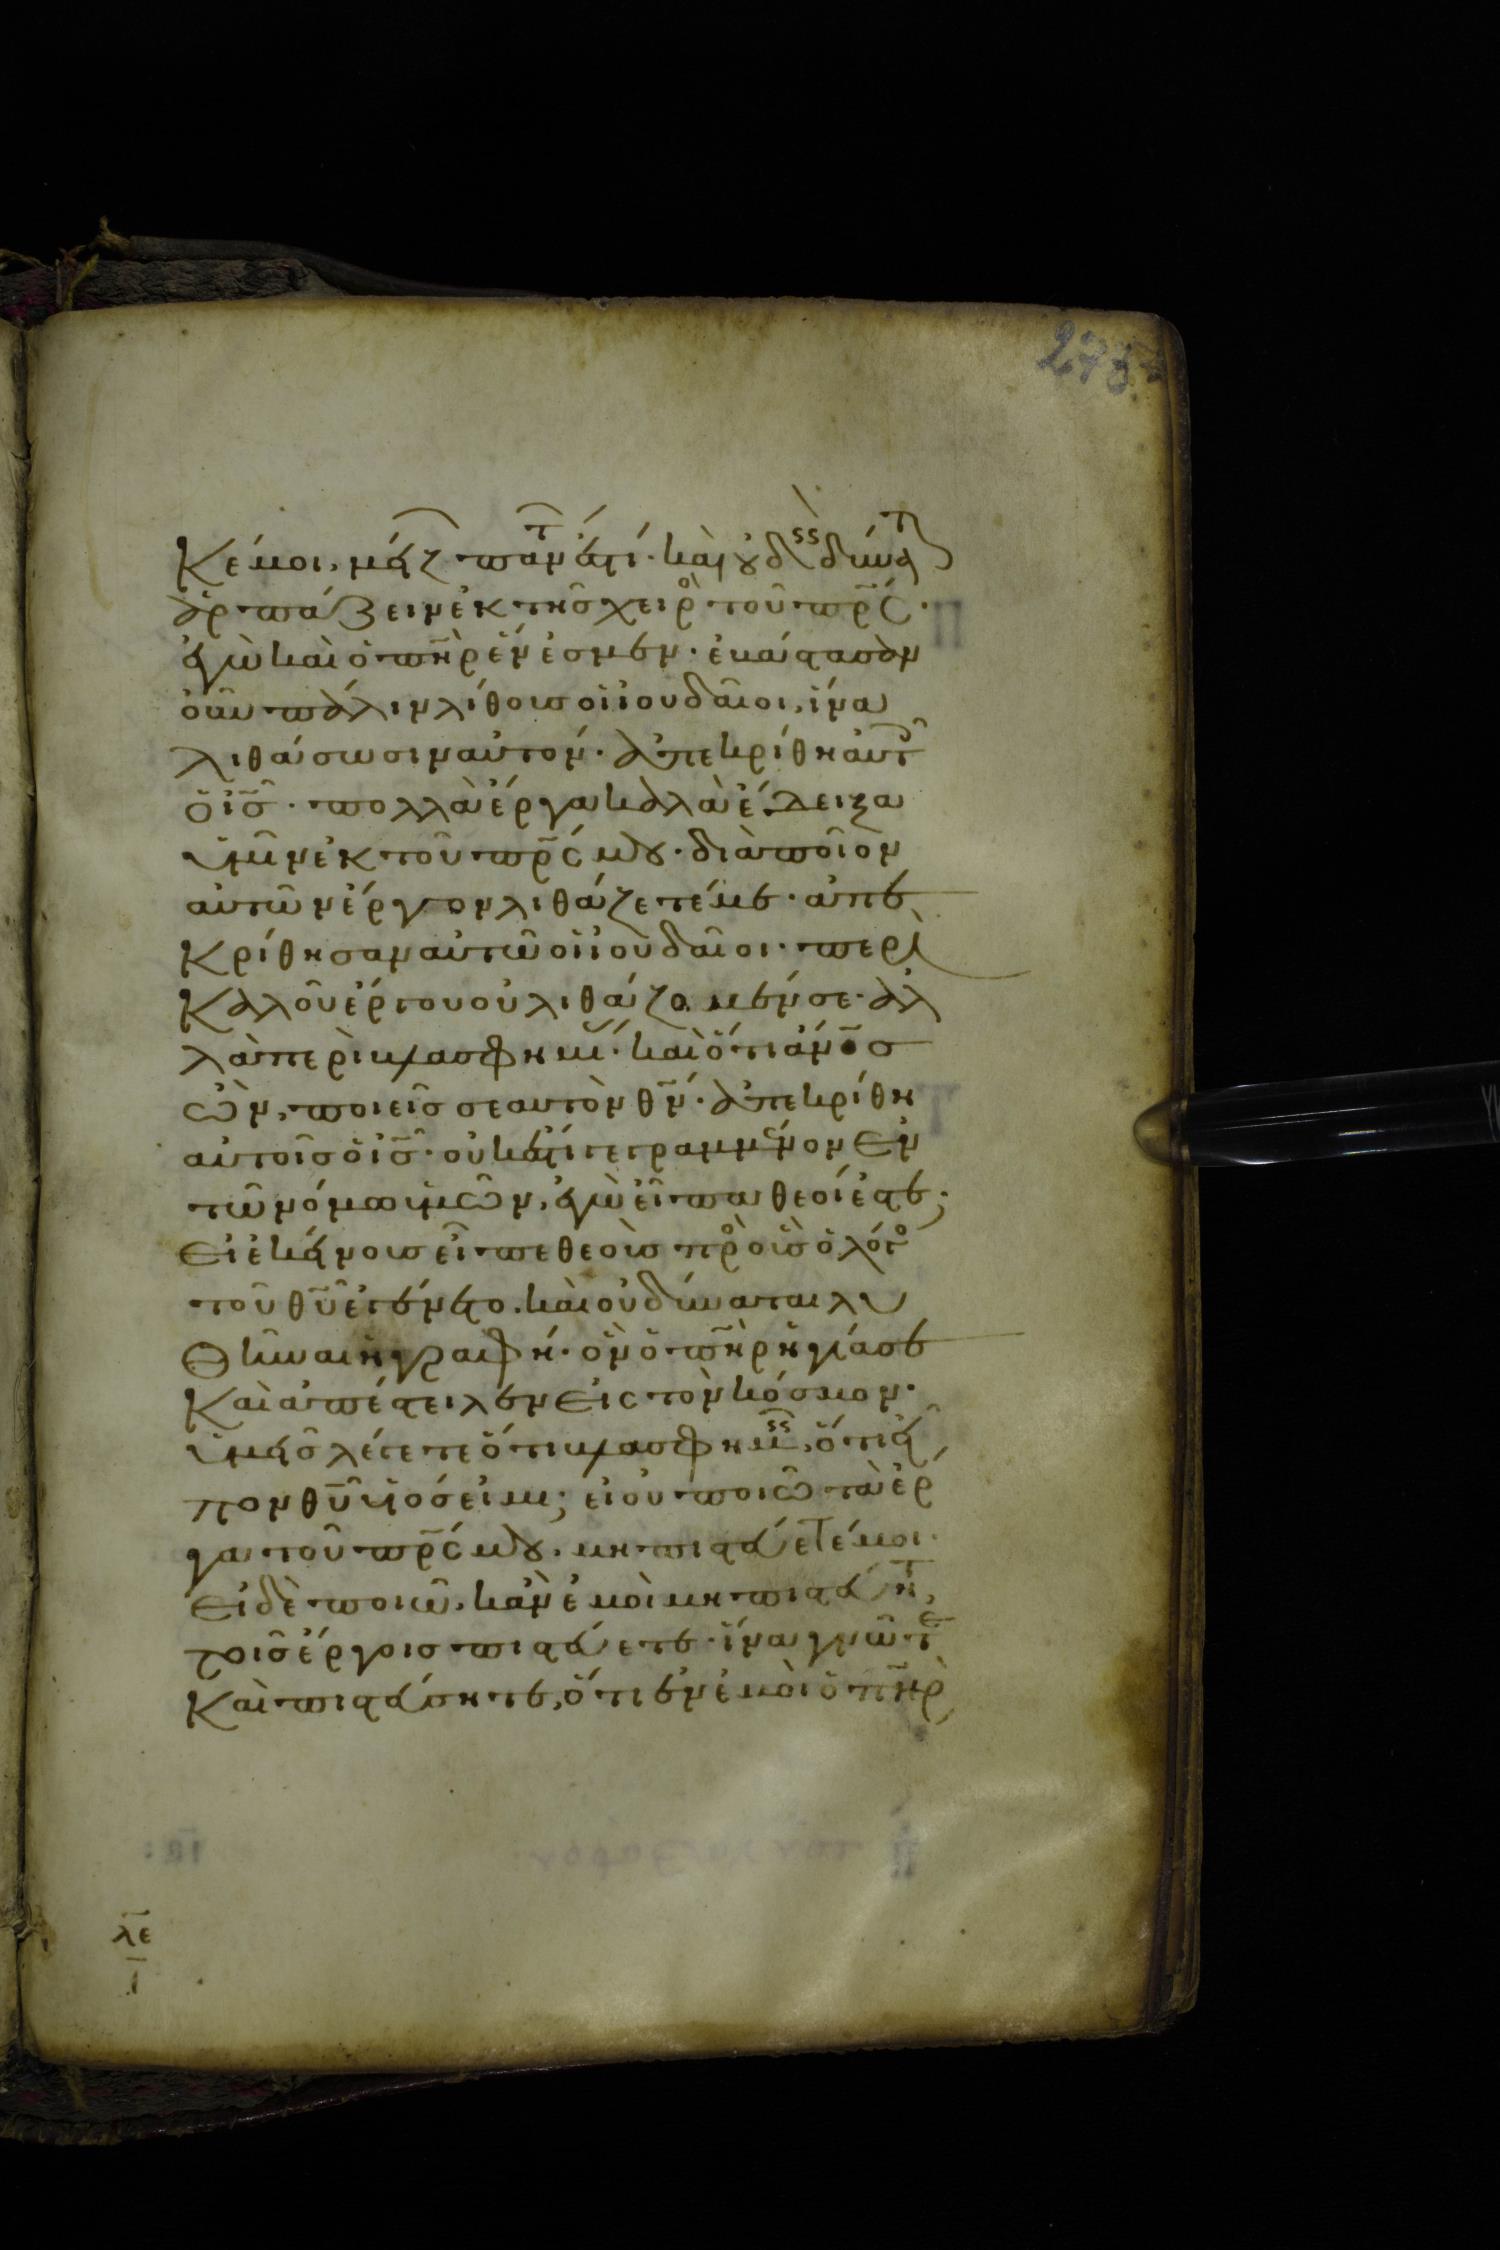 275
κέ μοι, μείζ πάντ ἐστί· καὶ οὐδεὶς δύνατ
ἁρπάζειν ἐκ τῆς χειρὸ τοῦ πρ̅ς·
ἐγὼ καὶ ὁ πη̅ρ ἕν ἐσμεν· ἐβάστασαν
οὖν πάλιν λίθους οἱ ἰουδαῖοι, ἵνα
λιθάσωσιν αὐτόν· ἀπεκρίθη αὐτ
ὁ ι̅σ· πολλὰ ἔργα καλὰ ἔδειξα
ὑμῖν ἐκ τοῦ πρ̅ς μου· διὰ ποῖον
αὐτῶν ἔργον λιθάζετέ με· ἀπε
κρίθησαν αὐτῶ οἱ ἰουδαῖοι· περὶ
καλοῦ ἔργου οὐ λιθάζομέν σε· ἀλ
λὰ περὶ βλασφημί· καὶ ὅτι α̅νος
ὢν, ποιεῖς σεαυτὸν θ̅ν· ἀπεκρίθη
αὐτοῖς ὁ ι̅σ· οὐκ ἔστι γεγραμμένον ἐν
τῶ νόμω ὑμῶν, ἐγὼ εἶπα θεοί ἐστε;
εἰ ἐκείνους εἶπε θεοὺς πρὸ οὓς ὁ λόγο
τοῦ θ̅υ ἐγένετο. καὶ οὐ δύναται λυ
θῆναι ἡ γραφή· ὃν ὁ πη̅ρ ἡγίασε
καὶ ἀπέστειλεν εἰς τὸν κόσμον·
ὑμεῖς λέγετε ὅτι βλασφημεῖς, ὅτι εἶ
πον θ̅υ υἱός εἰμι; εἰ οὐ ποιῶ τὰ ἔρ
γα τοῦ πρ̅ς μου, μὴ πιστεύετέ μοι·
εἰ δὲ ποιῶ, κἂν ἐμοὶ μὴ πιστεύητ,
τοῖς ἔργοις πιστεύετε· ἵνα γνῶτε
καὶ πιστεύσητε, ὅτι ἐν ἐμοὶ ὁ πη̅ρ
λε
ι